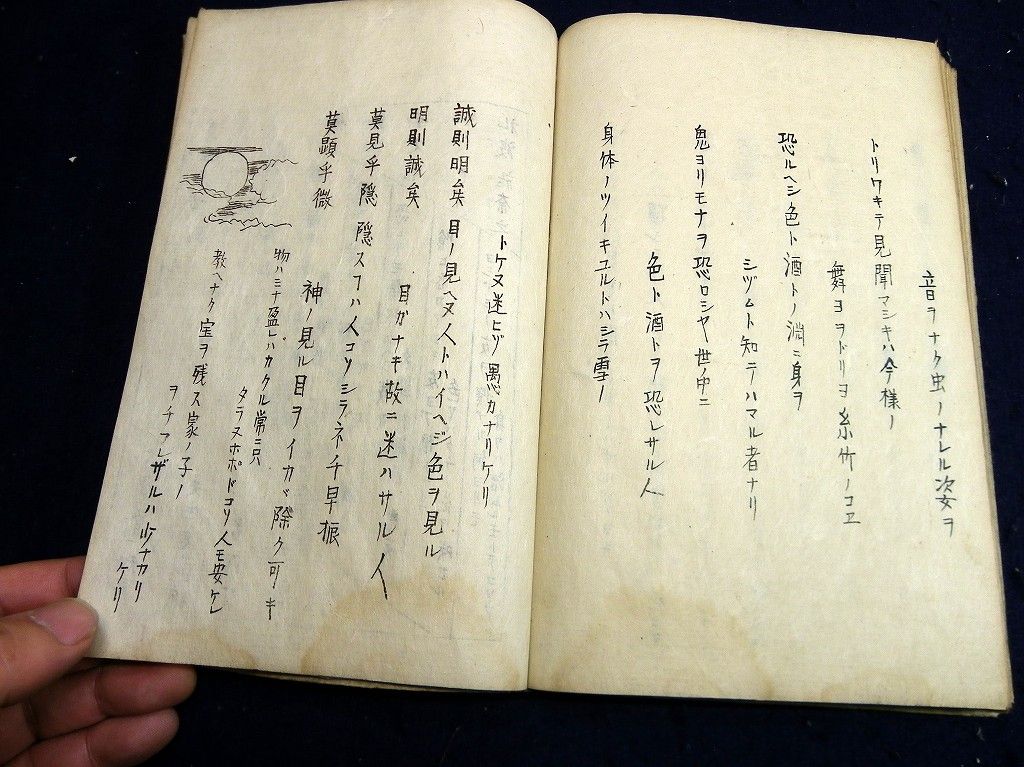 音ヲナク虫ノナレル姿ヲ
トリワキテ見聞マシキハ今様ノ
舞ヨヲドリヨ糸竹ノコヱ
恐ルヘシ色ト酒トノ淵ニ身ヲ
シヅムト知ラハマル者ナリ
鬼ヨリモナヲ恐ロシヤ世ノ中ニ
色ト酒トヲ恐レサル人
身体ノツイキユルトハシラ雪ノ
トケヌ迷ヒゾ愚カナリケリ
誠則明矣 目ノ見ヘヌ人トハイヘジ色ヲ見ル
明則誠矣 目ガナキ故ニ迷ハサル人
莫見乎隠 隠スヿハ人コソシラネチ早振
莫顕乎微 神ノ見ル目ヲイカヾ除ク可キ
物ハミナ盈レハカクル常ニ只
タラヌホドコソ人モ安ケレ
教ヘナク宝ヲ残ス家ノ子ノ
ヲチフレザルハ少ナカリ
ケリ